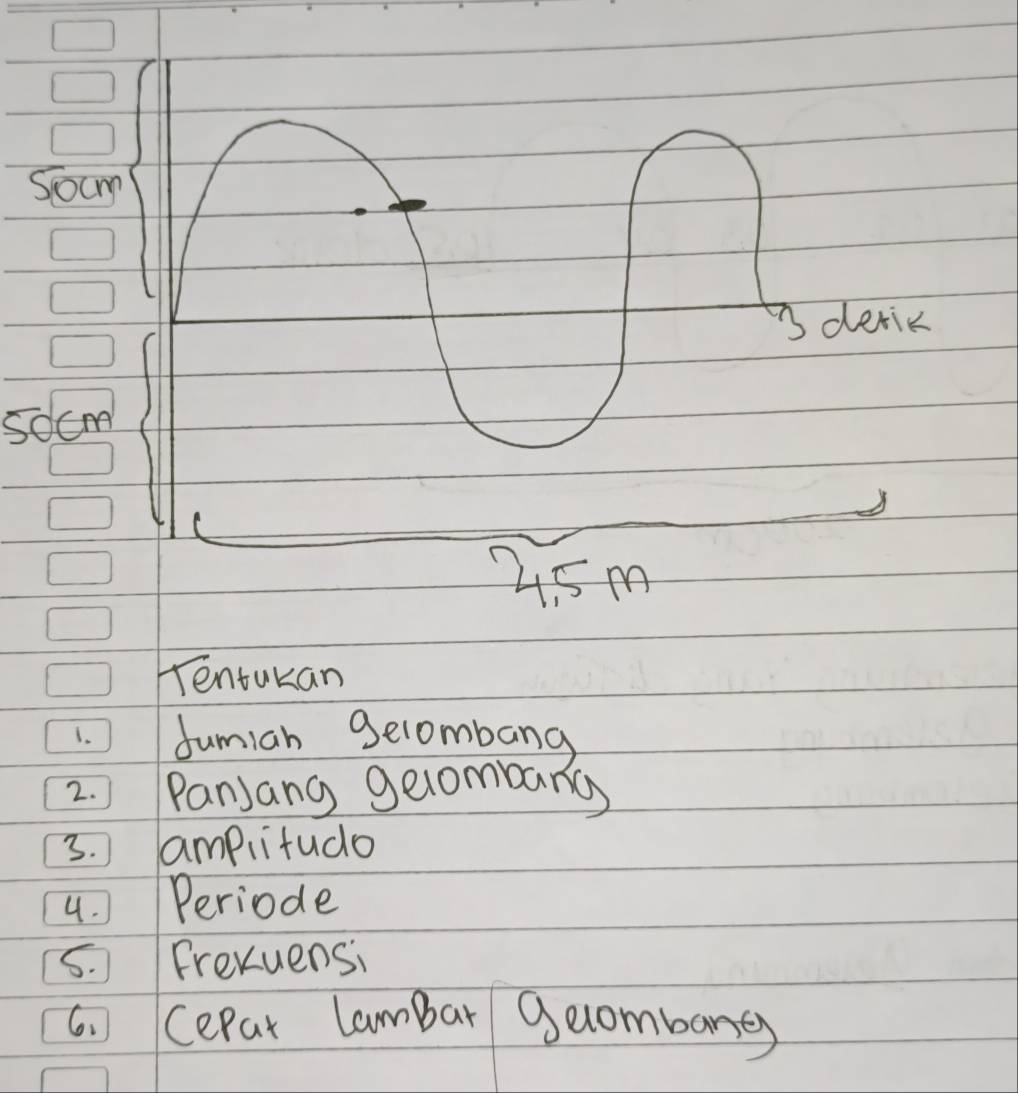 50cm
3 detik
50cm
4,5 m
Tentukan
1. Jumlah gelombang
2. Panjang gelombang
3. amplitudo
4. Periode
5. Frekuensi
6. Cepat lamBat gelombang